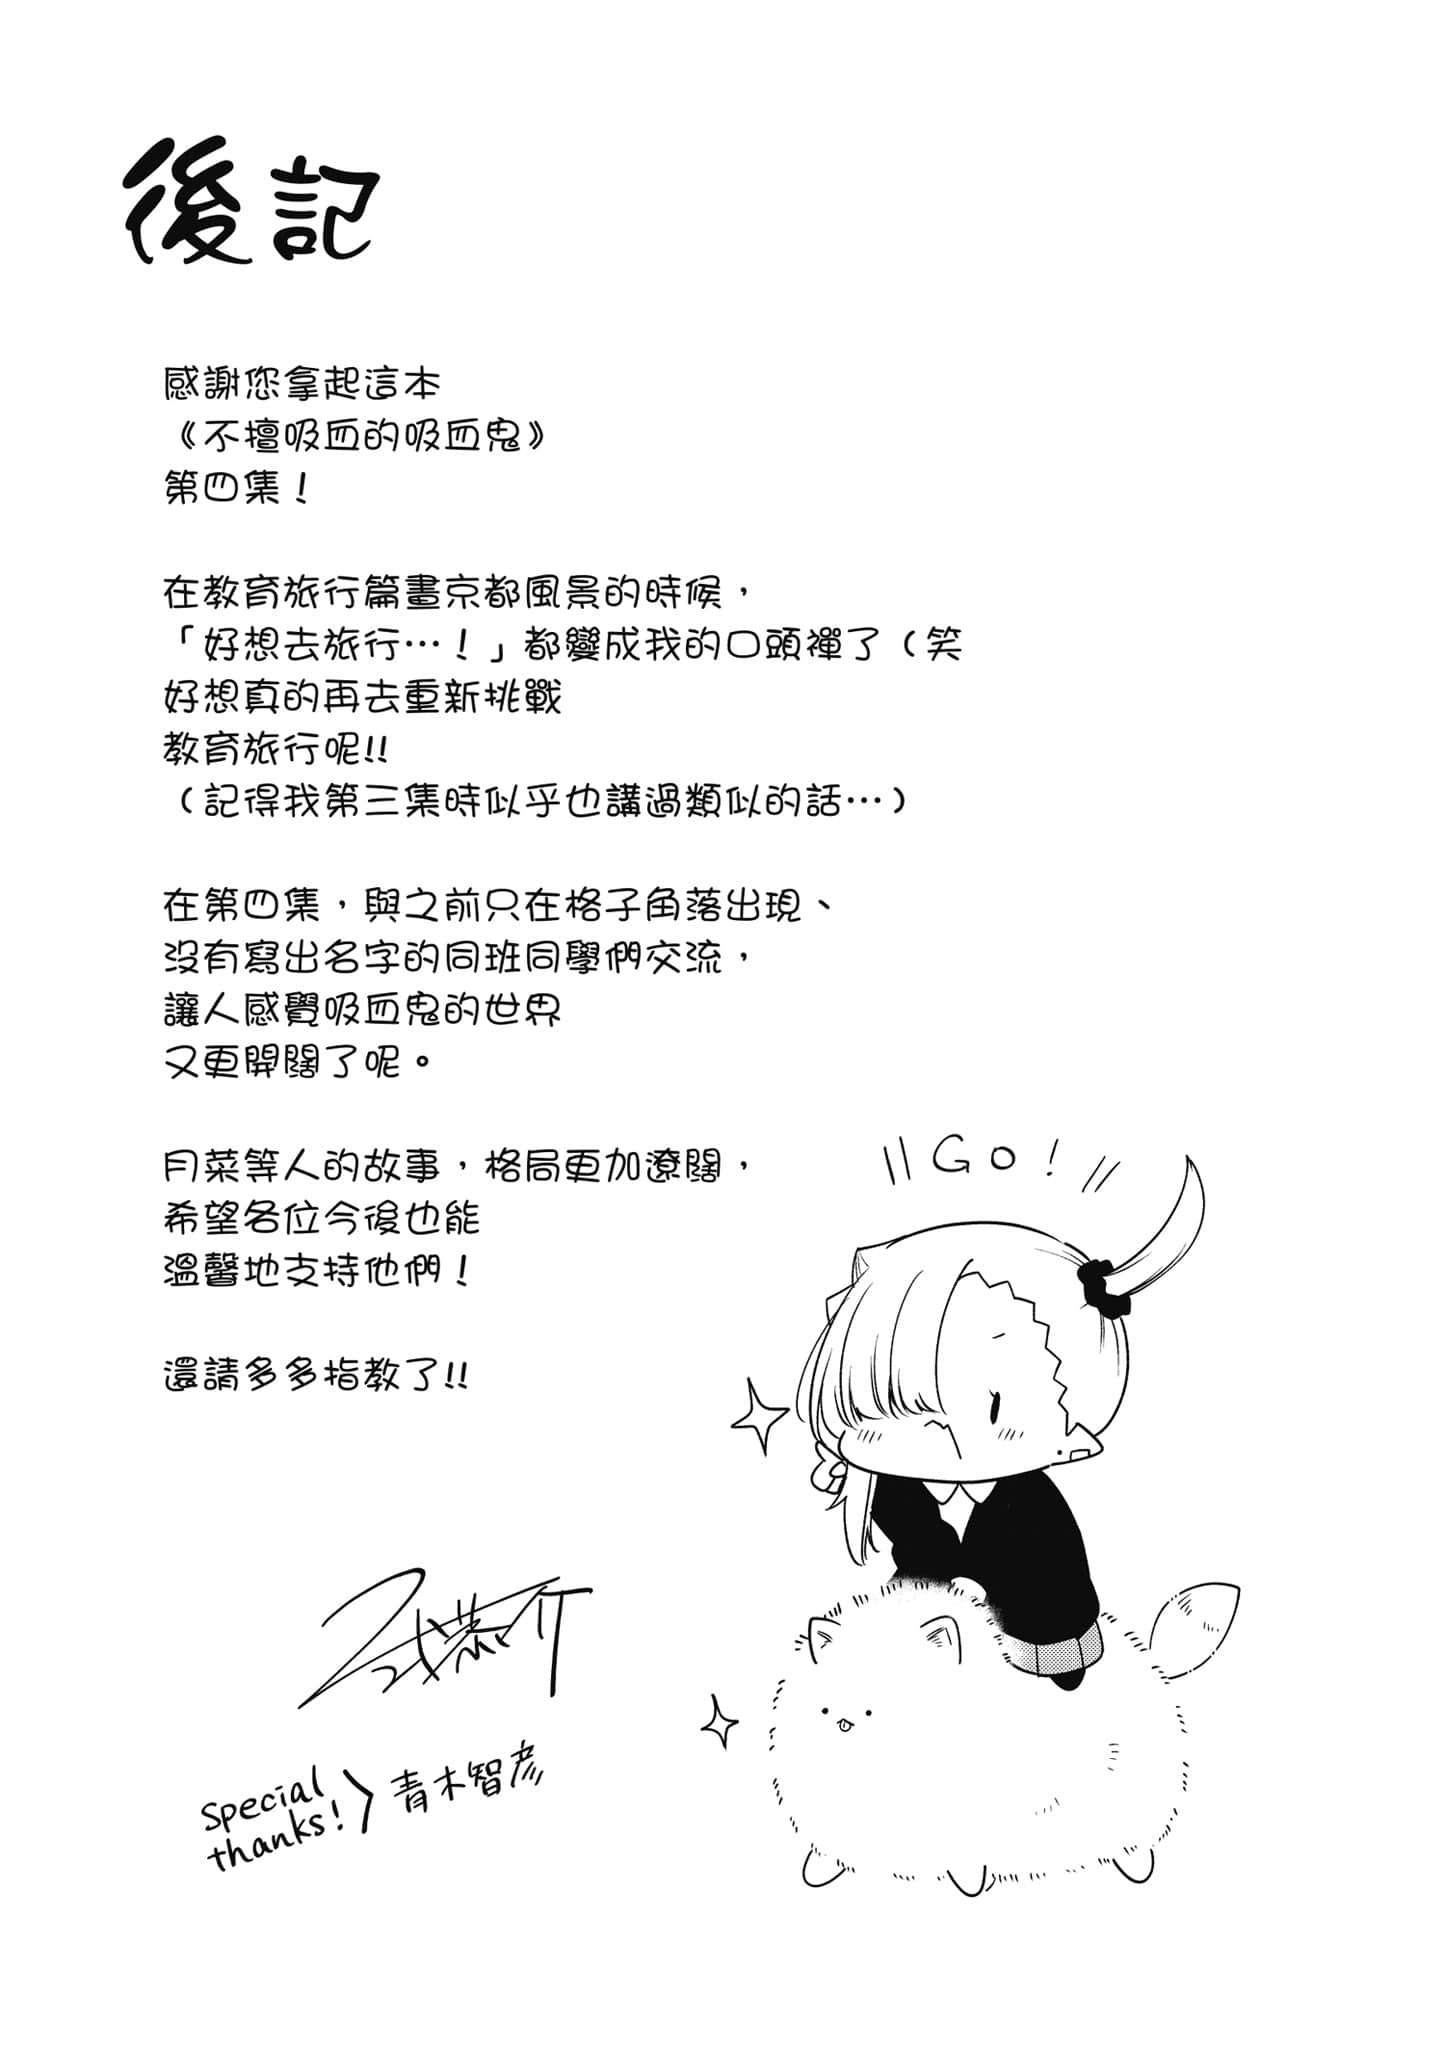 後記
感謝您拿起這本
《不擅吸血的吸血鬼》
第四集！
在教育旅行篇畫京都風景的時候，
「好想去旅行…！」都變成我的口頭禪了（笑
好想真的再去重新挑戰
教育旅行呢!!
（記得我第三集時似乎也講過類似的話…）
在第四集，與之前只在格子角落出現、
沒有寫出名字的同班同學們交流，
讓人感覺吸血鬼的世界
又更開闊了呢。
月菜等人的故事，格局更加遼闊，
希望各位今後也能
溫馨地支持他們！
還請多多指教了!!
GO!
special
thanks!
青木智彦